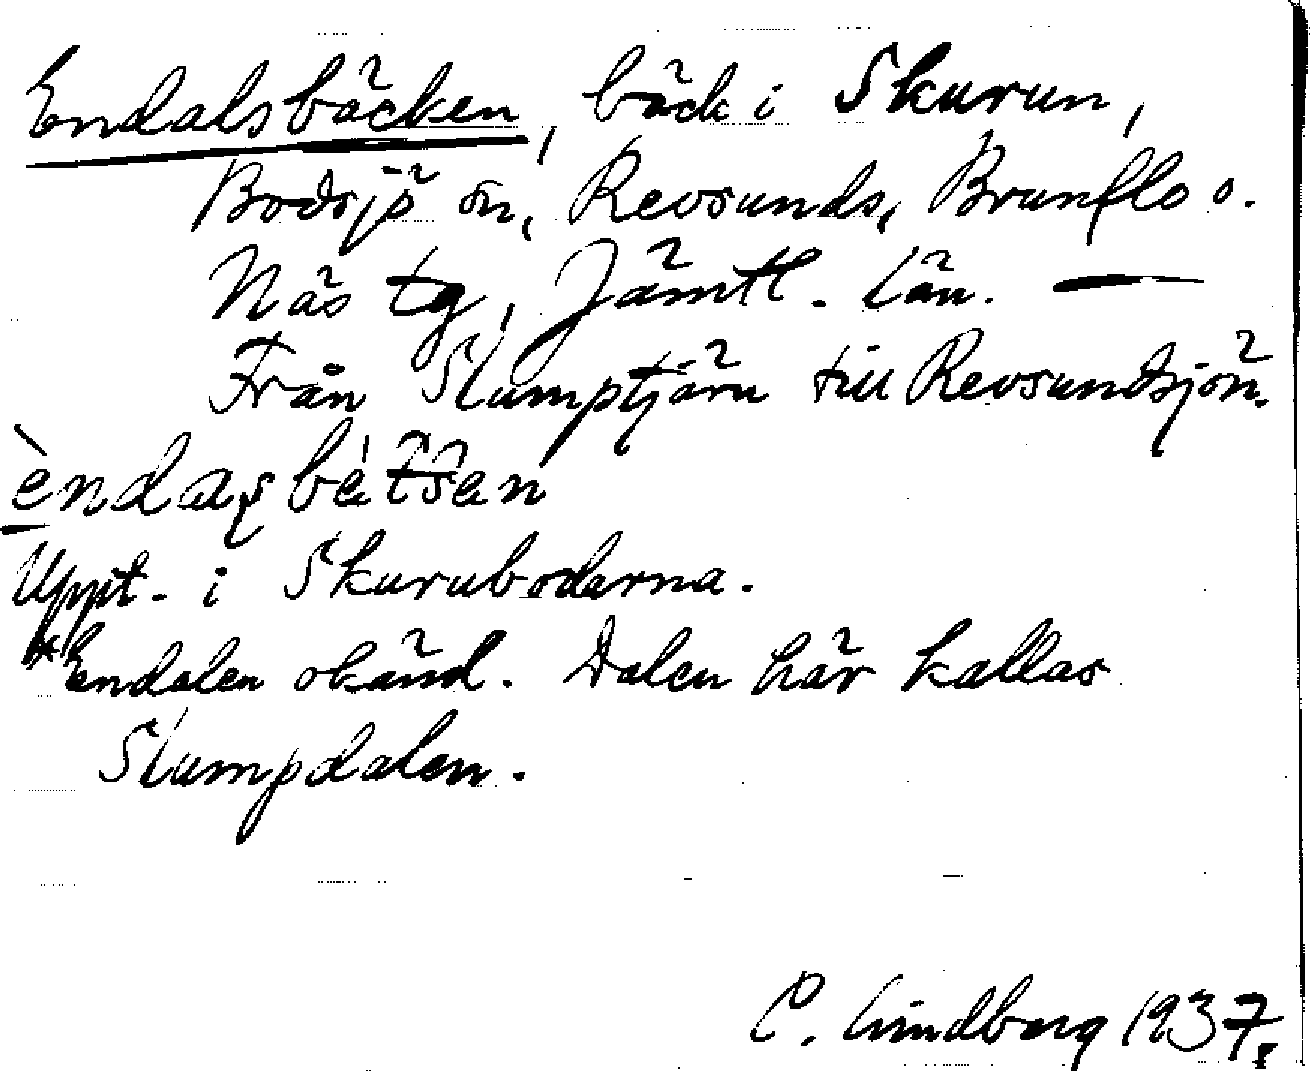 Endalsbäcken, bäck i Skurun,
Bodsjö sn, Revsunds, Brunflo o.
Näs tg, Jämtl. län. —
Från Slumptjärn till Revsundsjön.
Uppt. i Skurubodarna.
*Endalen okänd. Dalen här kallas
Slumpdalen.
C. Lindberg 1937.